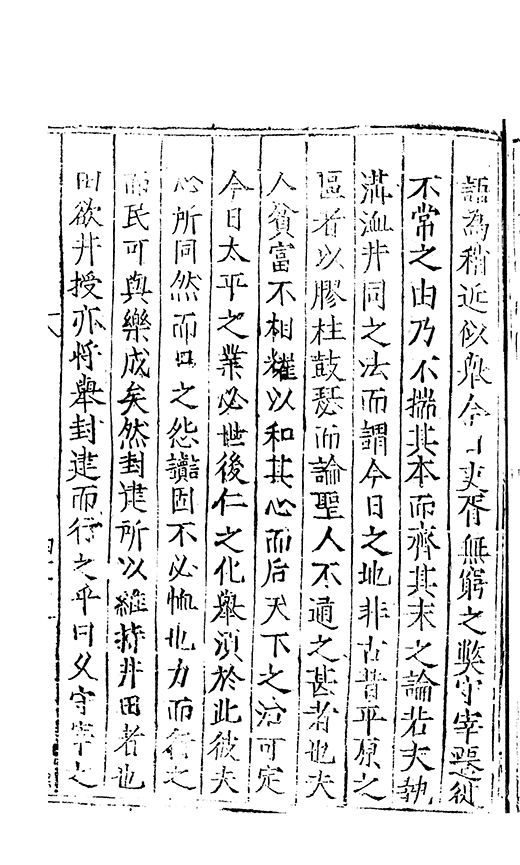 語為稍近似與今日吏胥無窮之弊守宰遷徙
不常之由乃不揣其本而齊其末之論若夫執
溝洫井同之法而謂今日之地非古昔平原之
區者以膠柱鼓瑟而論聖人不通之甚者也夫
人貧富不相耀以和其心而后天下之治可定
今日太平之業必世後仁之化舉湏於此彼夫
心所同然而口之怨讟固不必恤也力而行之
而民可與樂成矣然封建所以維持井田者也
田欲井授亦将舉封建而行之乎曰久守宰之